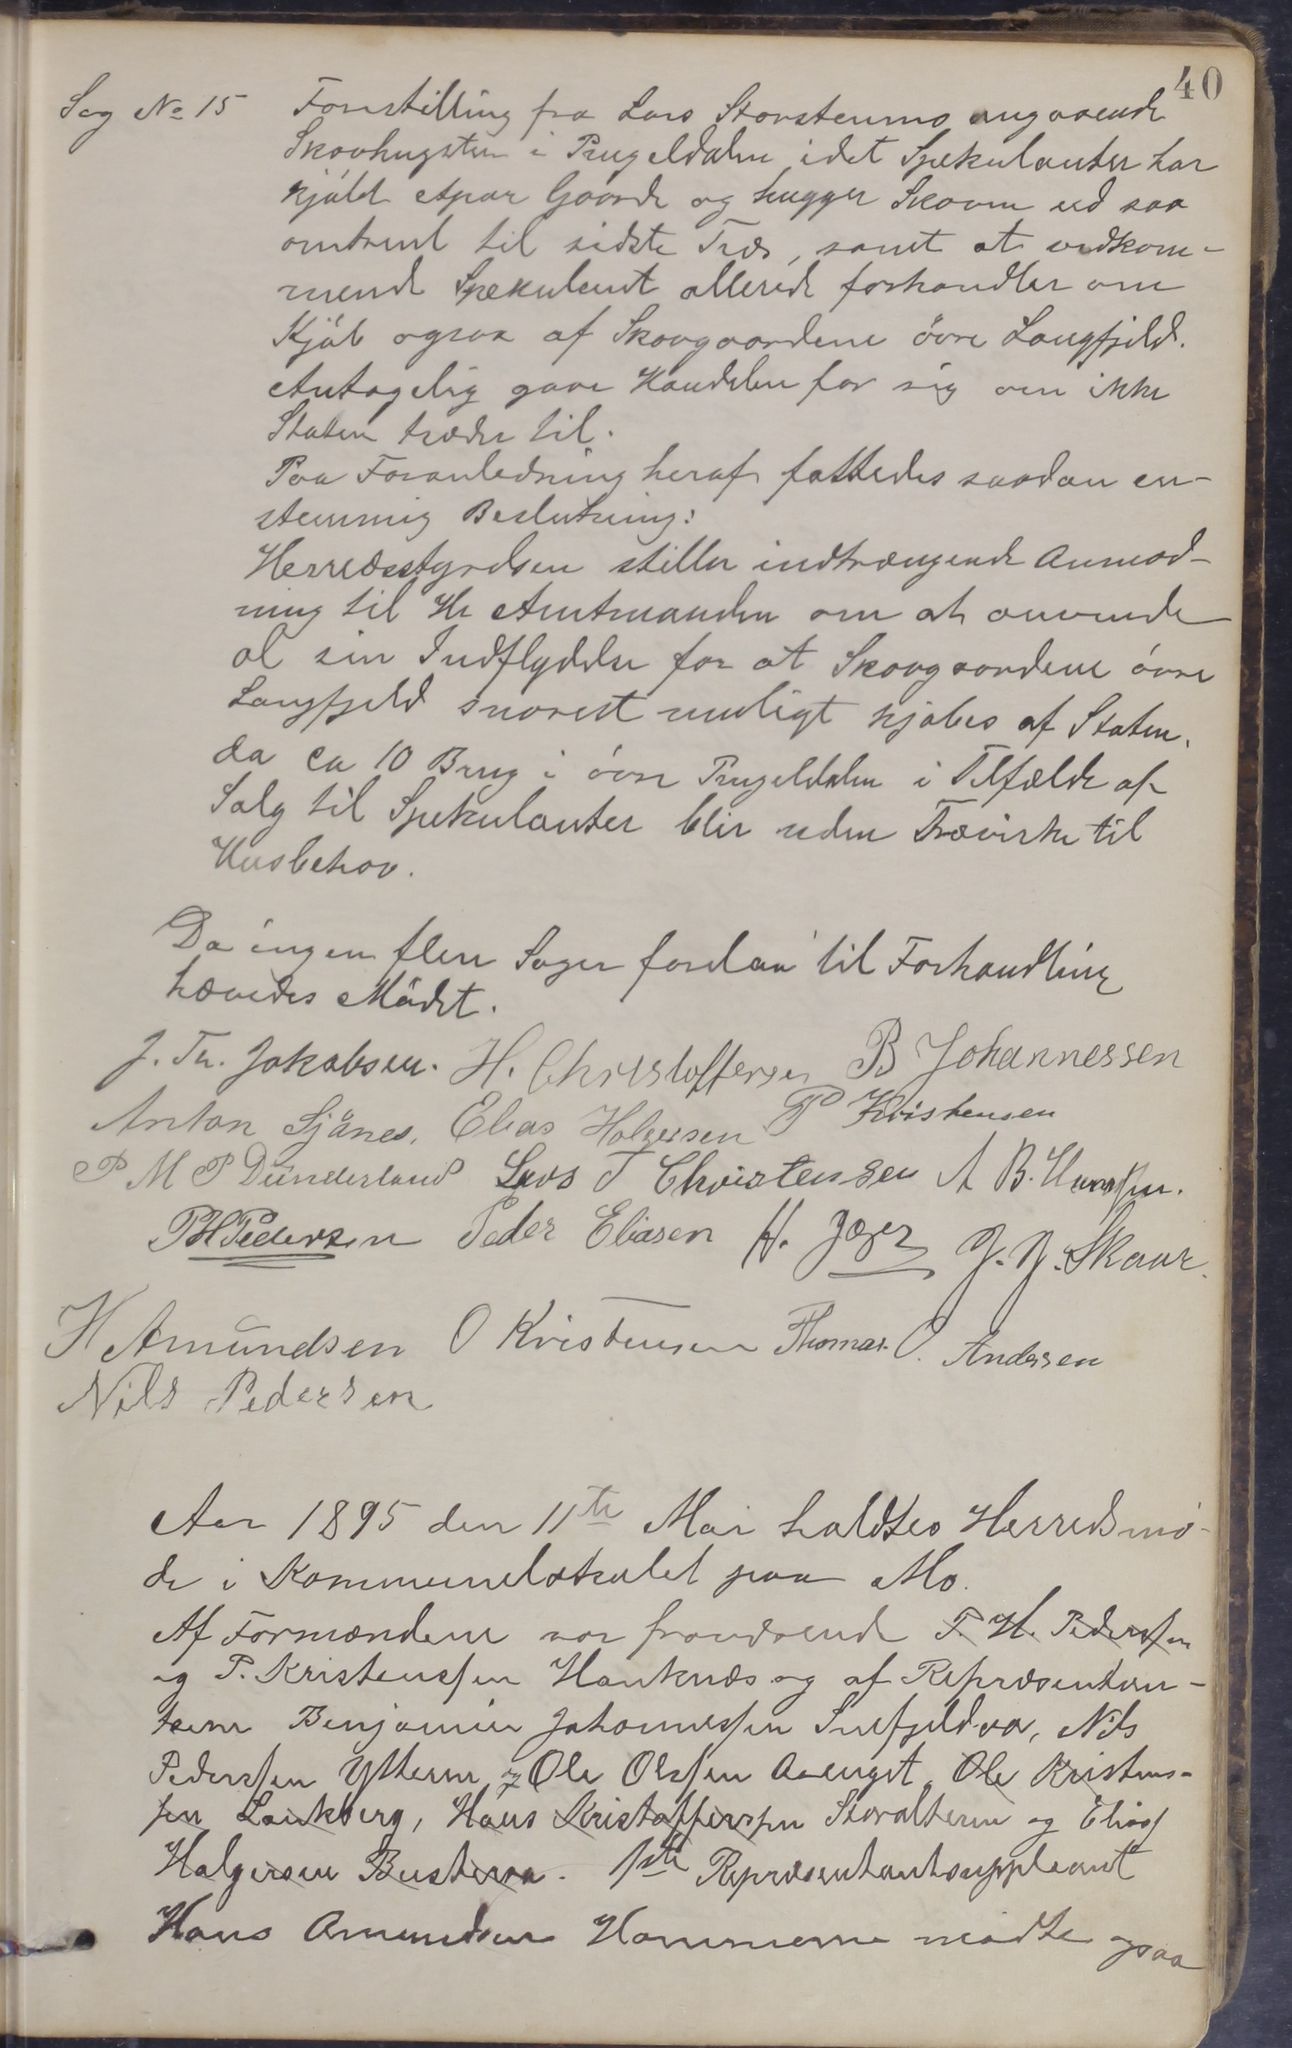 40
Sag No 15 Forestilling fra Lars Storstenmo angaaende
Skovhugsten i Pugeldalen idet Spekulanter har
kjøbt etpar Gaarde og hugger Skoven ud saa
omtrent til sidste Træ, samt at vedkom-
mende Spekulant allerede forhandler om
Kjøb ogsaa af Skovgaardene øvre Langfjeld.
Antagelig gaar Handelen for sig om ikke
Staten træder til.
Paa Foranledning heraf fattedes saadan en-
stemmig Beslutning:
Herredsstyrelsen stiller indtrængende Anmod-
ning til Hr Amtmanden om at anvende
al sin Indflydelse for at Skovgaardene øvre
Langfjeld snarest muligt kjøbes af Staten,
da ca 10 Brug i øvre Pugeldalen i Tilfælde af
Salg til Spekulanter blir uden Trævirke til
Husbehov.
Da ingen flere Sager forelaa til Forhandling
hævedes Mødet.
J. Th. Jakobsen. H. Christoffersen B Johannessen
Anton Sjånes, Elias Holgersen P Kristensen
P M P Dunderland Lars T Christensen A B.
P H Pedersen Peder Eliasen H. Jæger J. J. Skaar.
H Amundsen O Kristensen Thomas O. Andersen
Nils Pedersen
Aar 1895 den 11te Mai holdtes Herredsmø-
de i Kommunelokalet paa Mo.
Af Formændene var fraværende P. H. Pederssen
og P. Kristenssen Hauknæs og af Repræsentan-
terne Benjamin Johannessen Snefjeldaa, Nils
Pederssen Ytteren og Ole Olssen Aaenget, Ole Kristens-
sen Lankberg, Hans Kristofferssen Storalteren og Elias
Holgersen Busteraa. 1ste Repræsentantsuppleant
Hans Amundsen Hammeren mødte ogsaa